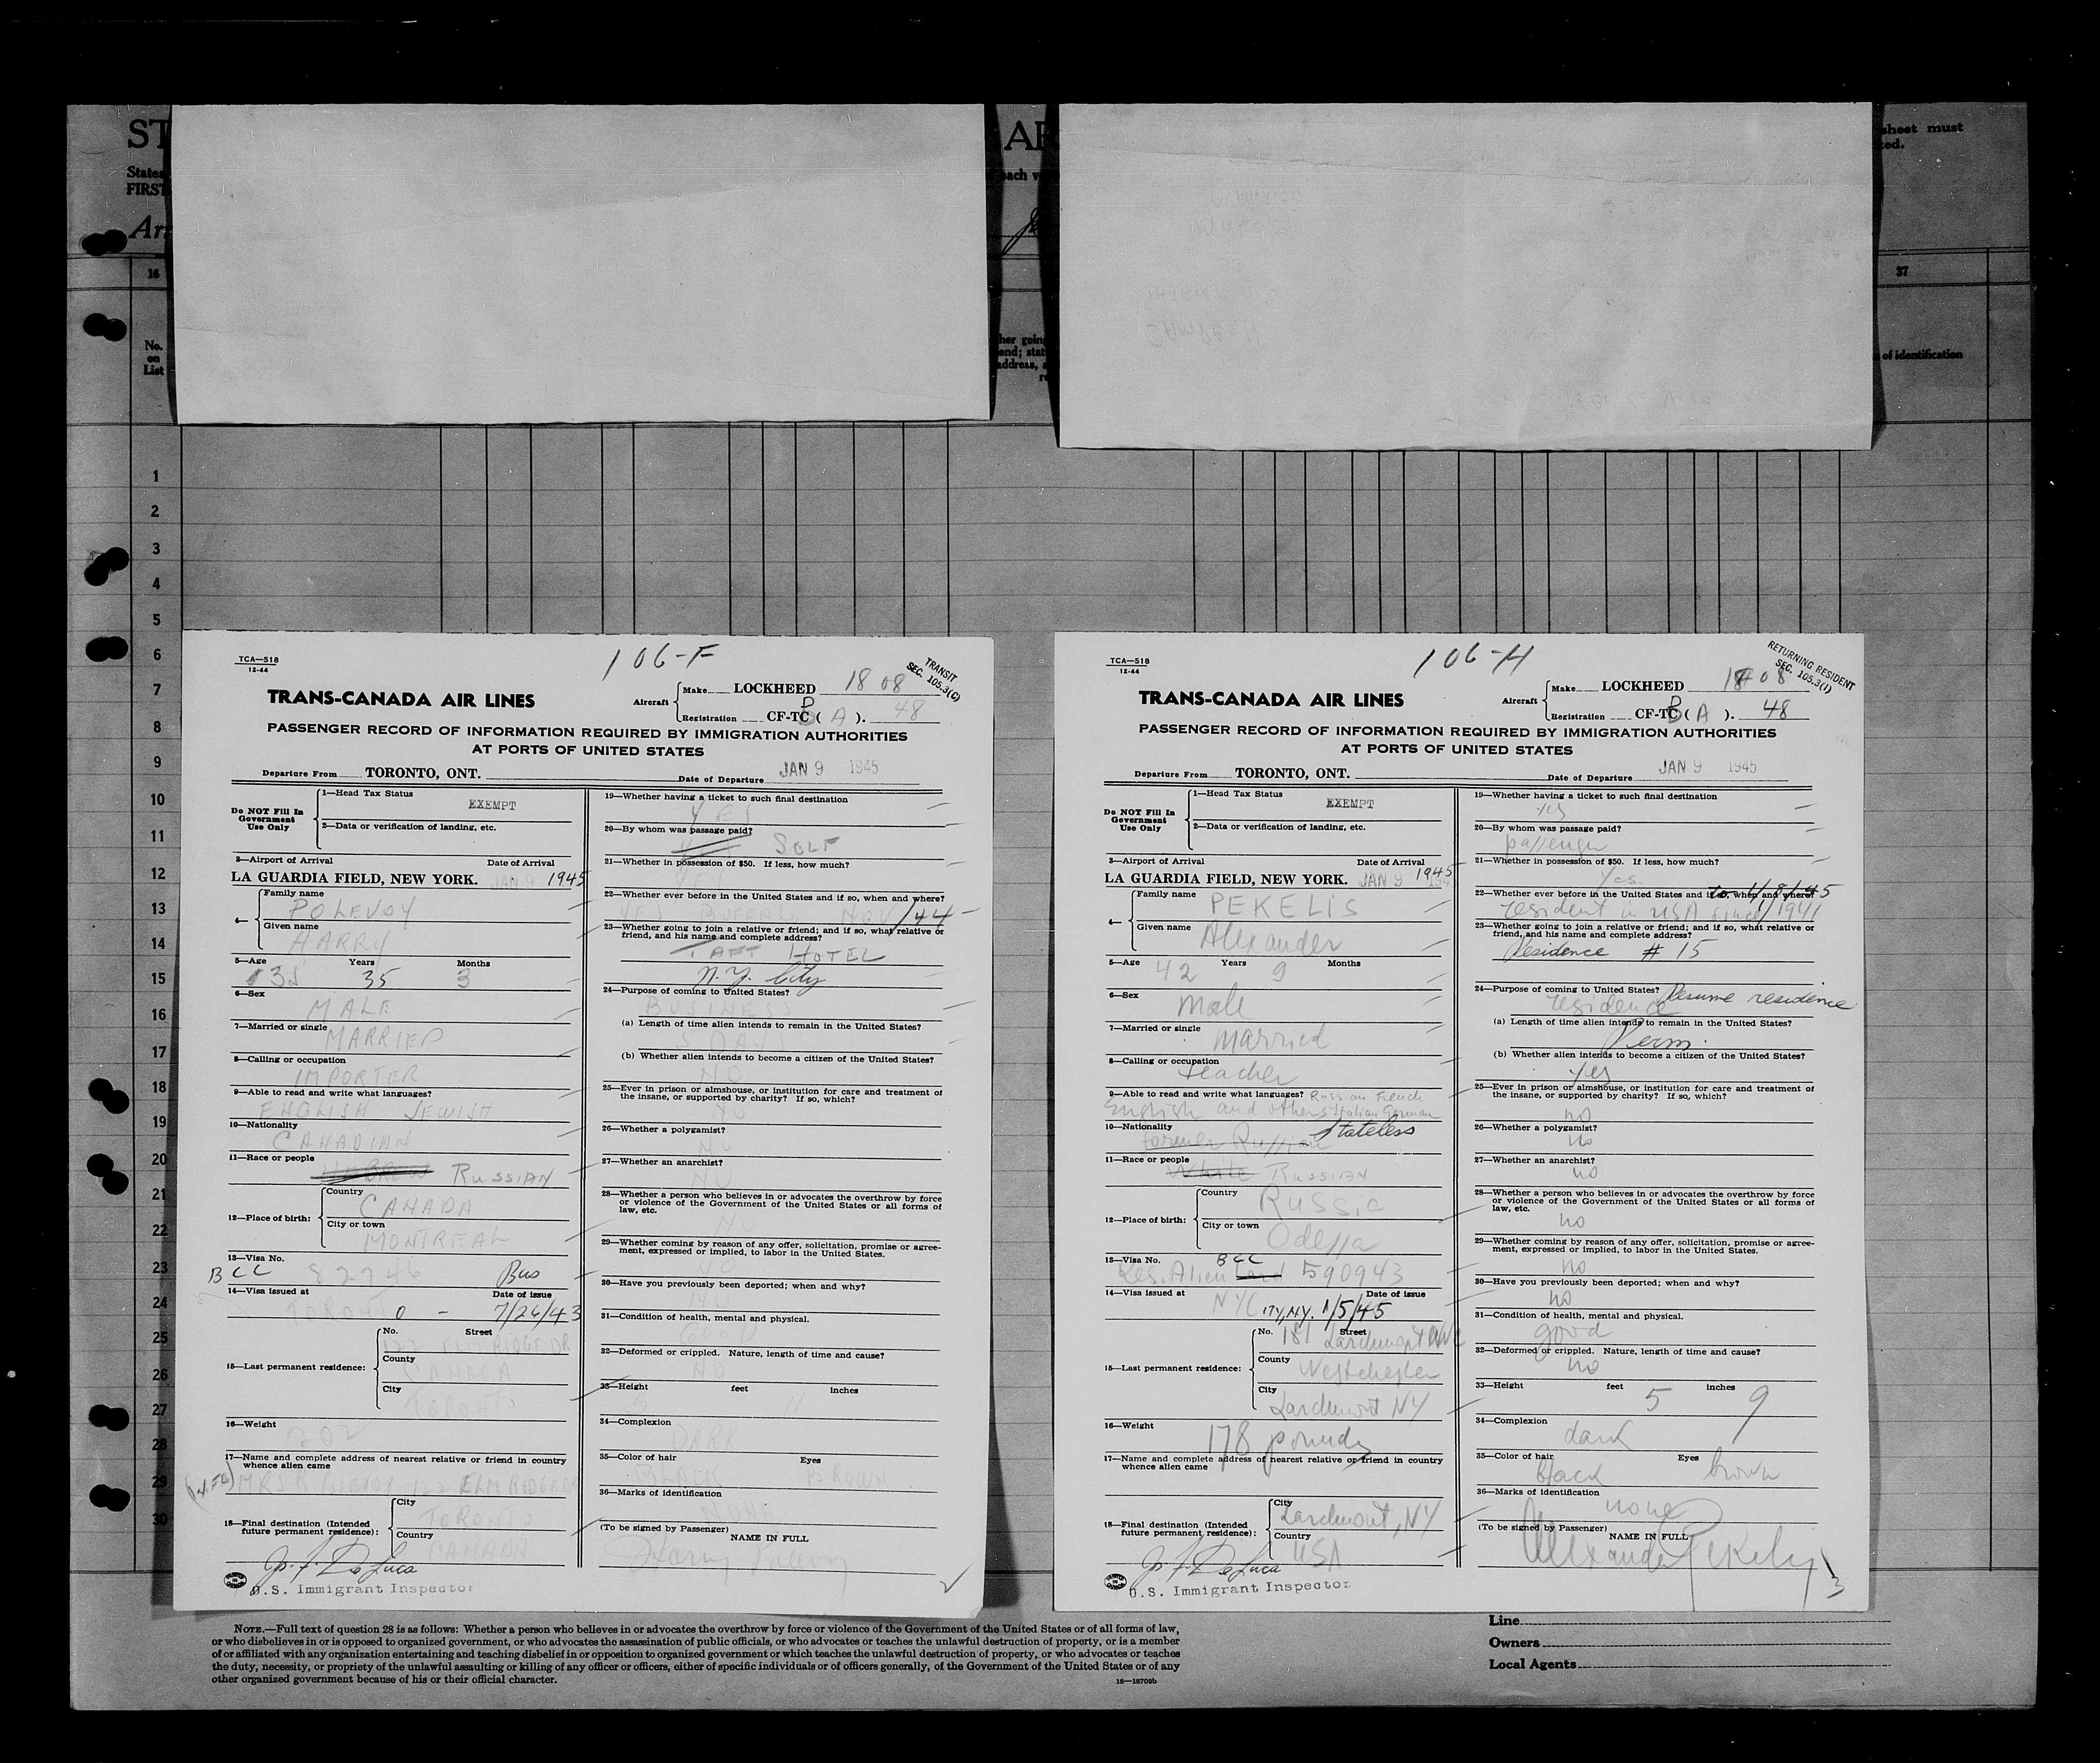 ST
AR
sheet must
ted.
States
FIRST
each v
Arr
16
37
No.
on
List
her goin
end; stat
address, a
re
of identification
1
2
3
4
5
6
7
8
9
10
11
12
13
14
15
16
17
18
19
20
21
22
23
24
25
26
27
28
29
30
106-F
TCA—518
12-44
TRANSIT
SEC. 105.3(C)
TRANS-CANADA AIR LINES
Aircraft Make LOCKHEED 18 08
Registration CF-TC ( A ). 48
PASSENGER RECORD OF INFORMATION REQUIRED BY IMMIGRATION AUTHORITIES
AT PORTS OF UNITED STATES
Departure From TORONTO, ONT. Date of Departure JAN 9 1945
Do NOT Fill In Government Use Only
1—Head Tax Status EXEMPT
2—Data or verification of landing, etc.
3—Airport of Arrival Date of Arrival
LA GUARDIA FIELD, NEW YORK. JAN 9 1945
4— Family name
POLEVOY
Given name
HARRY
5—Age Years Months
35 35 3
6—Sex
MALE
7—Married or single
MARRIED
8—Calling or occupation
IMPORTER
9—Able to read and write what languages?
ENGLISH JEWISH
10—Nationality
CANADIAN
11—Race or people
HEBREW RUSSIAN
12—Place of birth:
Country
CANADA
City or town
MONTREAL
13—Visa No.
BCC 82746 Bus
14—Visa issued at Date of issue
TORONTO - 7/26/43
15—Last permanent residence:
No. Street
ELM RIDGE DR
County
CANADA
City
TORONTO
16—Weight
202
17—Name and complete address of nearest relative or friend in country
whence alien came
(WIFE) MRS POLEVOY 122 ELM RIDGE DR
18—Final destination (Intended
future permanent residence):
City
TORONTO
Country
CANADA
J. F. De Luca
U.S. Immigrant Inspector
19—Whether having a ticket to such final destination
YES
20—By whom was passage paid?
SELF
21—Whether in possession of $50. If less, how much?
22—Whether ever before in the United States and if so, when and where?
YES BUFFALO NOV/44
23—Whether going to join a relative or friend; and if so, what relative or
friend, and his name and complete address?
TAFT HOTEL
N.Y. City
24—Purpose of coming to United States?
BUSINESS
(a) Length of time alien intends to remain in the United States?
5 DAYS
(b) Whether alien intends to become a citizen of the United States?
NO
25—Ever in prison or almshouse, or institution for care and treatment of
the insane, or supported by charity? If so, which?
NO
26—Whether a polygamist?
NO
27—Whether an anarchist?
NO
28—Whether a person who believes in or advocates the overthrow by force
or violence of the Government of the United States or all forms of
law, etc.
NO
29—Whether coming by reason of any offer, solicitation, promise or agree-
ment, expressed or implied, to labor in the United States.
NO
30—Have you previously been deported; when and why?
NO
31—Condition of health, mental and physical.
GOOD
32—Deformed or crippled. Nature, length of time and cause?
NO
33—Height feet inches
5 11
34—Complexion
DARK
35—Color of hair Eyes
BLACK BROWN
36—Marks of identification
NONE
(To be signed by Passenger) NAME IN FULL
Harry Polevoy
106-H
TCA—518
12-44
RETURNING RESIDENT
SEC. 105.3(1)
TRANS-CANADA AIR LINES
Aircraft Make LOCKHEED 18 08
Registration CF-TC ( A ). 48
PASSENGER RECORD OF INFORMATION REQUIRED BY IMMIGRATION AUTHORITIES
AT PORTS OF UNITED STATES
Departure From TORONTO, ONT. Date of Departure JAN 9 1945
Do NOT Fill In Government Use Only
1—Head Tax Status EXEMPT
2—Data or verification of landing, etc.
3—Airport of Arrival Date of Arrival
LA GUARDIA FIELD, NEW YORK. JAN 9 1945
4— Family name
PEKELIS
Given name
Alexander
5—Age Years Months
42 9
6—Sex
Male
7—Married or single
married
8—Calling or occupation
teacher
9—Able to read and write what languages? Russian French
English and others Italian German
10—Nationality
former Russian Stateless
11—Race or people
White RUSSIAN
12—Place of birth:
Country
Russia
City or town
Odessa
13—Visa No. BCC
Res. Alien Card 590943
14—Visa issued at Date of issue
NYCITY, N.Y. 1/5/45
15—Last permanent residence:
No. Street
181 Larchmont Ave
County
Westchester
City
Larchmont NY
16—Weight
178 pounds
17—Name and complete address of nearest relative or friend in country
whence alien came
18—Final destination (Intended
future permanent residence):
City
Larchmont, NY
Country
USA
J. F. De Luca
U.S. Immigrant Inspector
19—Whether having a ticket to such final destination
yes
20—By whom was passage paid?
passenger
21—Whether in possession of $50. If less, how much?
Yes.
22—Whether ever before in the United States and if so, when and where?
resident in USA since 1941
23—Whether going to join a relative or friend; and if so, what relative or
friend, and his name and complete address?
Residence # 15
24—Purpose of coming to United States? Resume residence
residence
(a) Length of time alien intends to remain in the United States?
Perm.
(b) Whether alien intends to become a citizen of the United States?
yes
25—Ever in prison or almshouse, or institution for care and treatment of
the insane, or supported by charity? If so, which?
no
26—Whether a polygamist?
no
27—Whether an anarchist?
no
28—Whether a person who believes in or advocates the overthrow by force
or violence of the Government of the United States or all forms of
law, etc.
no
29—Whether coming by reason of any offer, solicitation, promise or agree-
ment, expressed or implied, to labor in the United States.
no
30—Have you previously been deported; when and why?
no
31—Condition of health, mental and physical.
good
32—Deformed or crippled. Nature, length of time and cause?
no
33—Height feet inches
5 9
34—Complexion
dark
35—Color of hair Eyes
black brown
36—Marks of identification
none
(To be signed by Passenger) NAME IN FULL
Alexander Pekelis
NOTE.—Full text of question 28 is as follows: Whether a person who believes in or advocates the overthrow by force or violence of the Government of the United States or of all forms of law,
or who disbelieves in or is opposed to organized government, or who advocates the assassination of public officials, or who advocates or teaches the unlawful destruction of property, or is a member
of or affiliated with any organization entertaining and teaching disbelief in or opposition to organized government or which teaches the unlawful destruction of property, or who advocates or teaches
the duty, necessity, or propriety of the unlawful assaulting or killing of any officer or officers, either of specific individuals or of officers generally, of the Government of the United States or of any
other organized government because of his or their official character.
16—18709b
Line
Owners
Local Agents